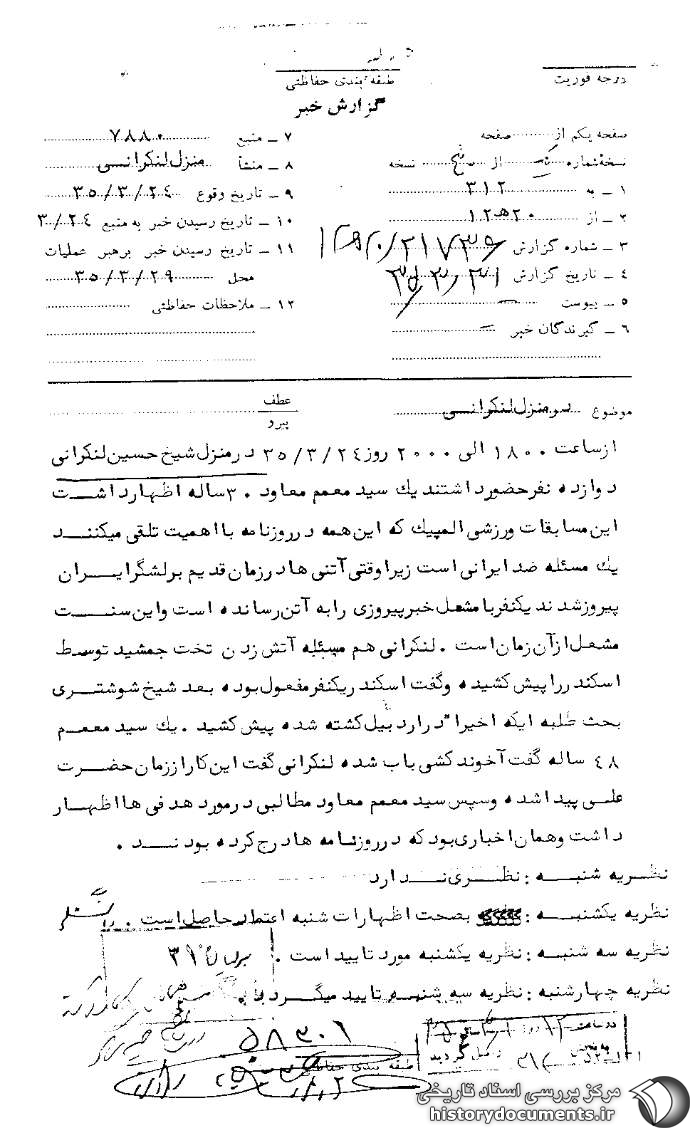 درجه فوریت
طبقه بندی حفاظتی
گزارش خبر
صفحه یکم از صفحه
نسخهٔ شماره از نسخه
۱ ـ به ۳۱۲
۲ ـ از ۲۰ ه ۱۲
۳ ـ شماره گزارش
۴ ـ تاریخ گزارش ۳۵/۳/۳۱
۵ ـ پیوست ـ
۶ ـ گیرندگان خبر ـ
۷ ـ منبع ۷۸۸۰
۸ ـ منشأ منزل لنکرانی
۹ ـ تاریخ وقوع ۳۵/۳/۲۴
۱۰ ـ تاریخ رسیدن خبر به منبع ۳/۲۴
۱۱ ـ تاریخ رسیدن خبر برهبر عملیات
محل ۳۵/۳/۲۹
۱۲ ـ ملاحظات حفاظتی
موضوع در منزل لنکرانی
عطف
پیرو
از ساعت ۱۸۰۰ الی ۲۰۰۰ روز ۳۵/۳/۲۴ در منزل شیخ حسین لنکرانی
دوازده نفر حضور داشتند یک سید معمم معاود ۳۰ ساله اظهار داشت
این مسابقات ورزشی المپیک که این همه در روزنامه با اهمیت تلقی میکنند
یک مسئله ضد ایرانی است زیرا وقتی آتنی ها در زمان قدیم بر لشگر ایران
پیروز شدند یکنفر با مشعل خبر پیروزی را به آتن رسانده است و این سنت
مشعل از آن زمان است . لنکرانی هم مسئله آتش زدن تخت جمشید توسط
اسکندر را پیش کشیده و گفت اسکندر یکنفر مفعول بوده بعد شیخ شوشتری
بحث طلبه ایکه اخیرا" در اردبیل کشته شده پیش کشید . یک سید معمم
۴۸ ساله گفت آخوند کشی باب شده لنکرانی گفت این کار از زمان حضرت
علی پیدا شده و سپس سید معمم معاود مطالبی در مورد هدفی ها اظهار
داشت و همان اخباری بود که در روزنامه ها درج کرده بودند .
نظریه شنبه : نظری ندارد
نظریه یکشنبه : بصحت اظهارات شنبه اعتماد حاصل است .
نظریه سه شنبه : نظریه یکشنبه مورد تایید است .
نظریه چهارشنبه : نظریه سه شنبه تایید میگردد
۵۸۳۰۶
طبقه بندی حفاظتی
مرکز بررسی اسناد تاریخی
historydocuments.ir